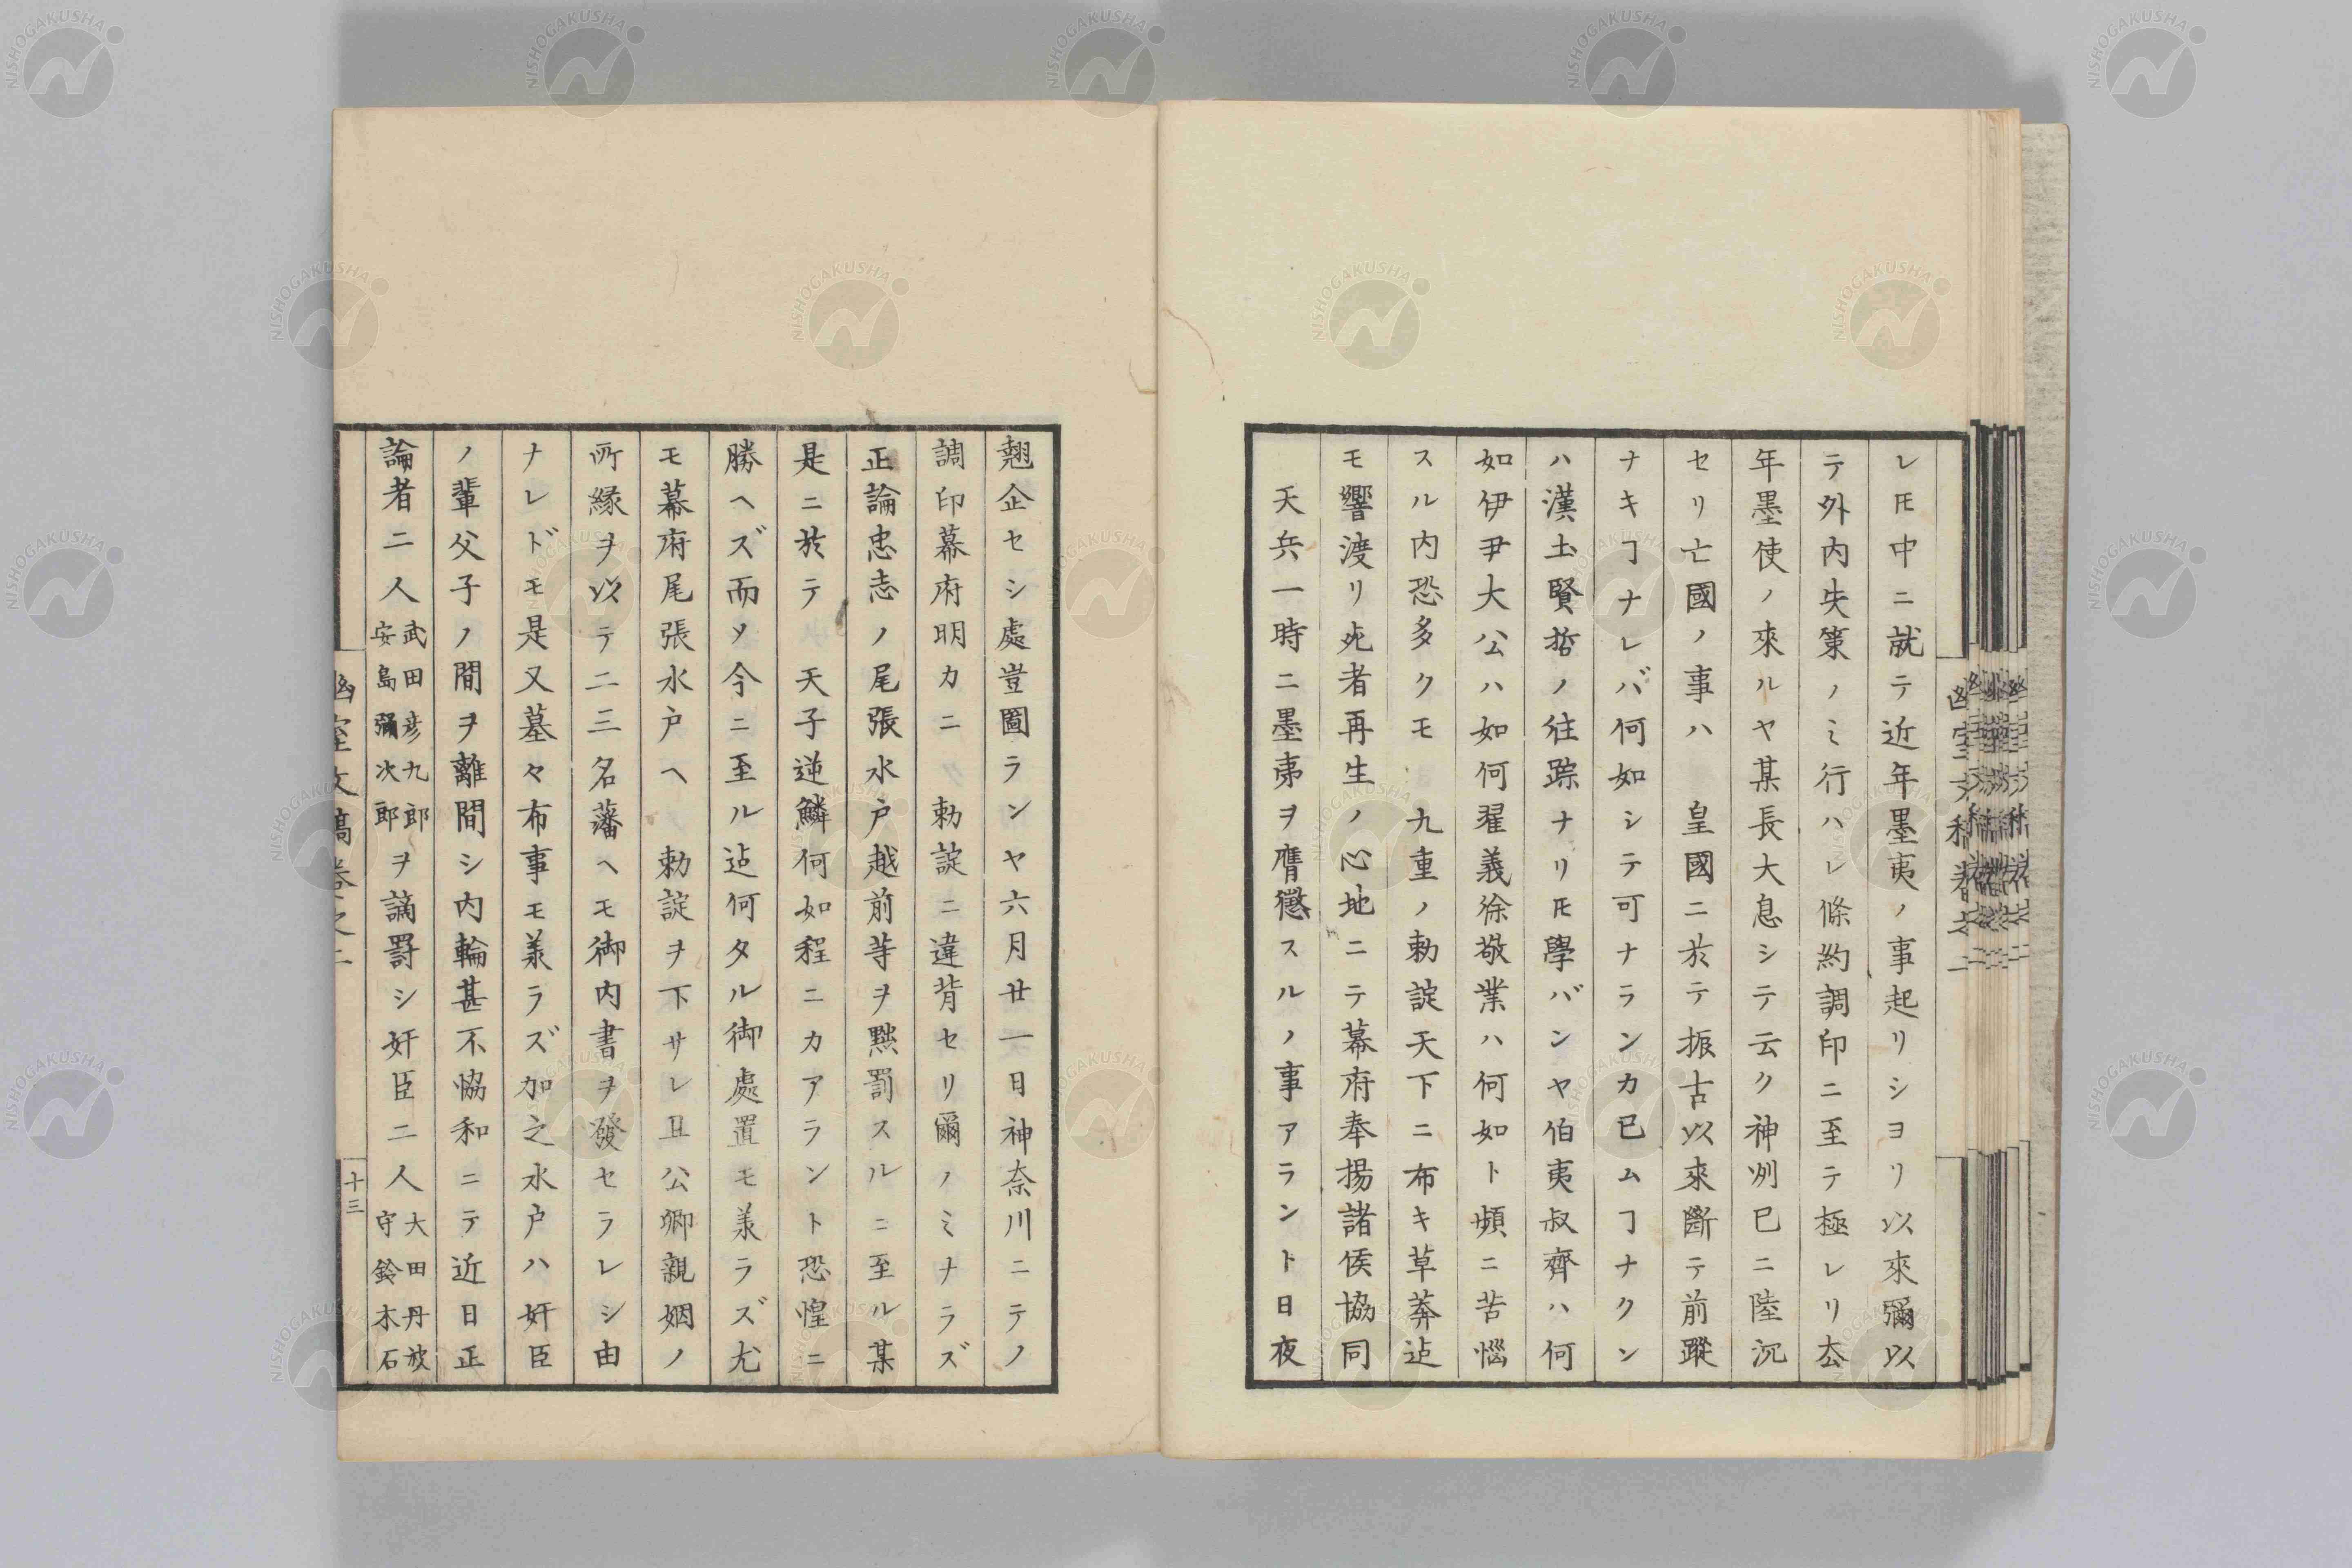 レ𪜈中ニ就テ近年墨夷ノ事起リシヨリ以來彌以
テ外内失策ノミ行ハレ條約調印ニ至テ極レリ厺
年墨使ノ來ルヤ某長大息シテ云ク神州已ニ陸沉
セリ亡國ノ事ハ 皇國ニ於テ振古以來斷テ前蹤
ナキヿナレバ何如シテ可ナランカ已ムヿナクン
ハ漢土賢哲ノ往踪ナリ𪜈學バンヤ伯夷叔齊ハ何
如伊尹大公ハ如何翟義徐敬業ハ何如ト頻ニ苦惱
スル内恐多クモ 九重ノ勅諚天下ニ布キ草莾迠
モ響渡リ死者再生ノ心地ニテ幕府奉揚諸侯協同
天兵一時ニ墨夷ヲ膺懲スルノ事アラント日夜
翹企セシ處豈圖ランヤ六月廿一日神奈川ニテノ
調印幕府明カニ 勅諚ニ違背セリ爾ノミナラズ
正論忠志ノ尾張水户越前等ヲ黜罰スルニ至ル某
是ニ於テ 天子逆鱗何如程ニカアラント恐惶ニ
勝ヘズ而ソ今ニ至ル迠何タル御處置モ羕ラズ尤
モ幕府尾張水户ヘ 勅諚ヲ下サレ且公卿親姻ノ
所縁ヲ以テ二三名藩ヘモ御内書ヲ發セラレシ由
ナレドモ是又墓々布事モ羕ラズ加之水户ハ奸臣
ノ輩父子ノ間ヲ離間シ内輪甚不恊和ニテ近日正
論者二人武田彦九郎安島彌次郎ヲ謫罸シ奸臣二人大田丹波守鈴木石
幽室文稿卷之二
十三
NISHOGAKUSHA